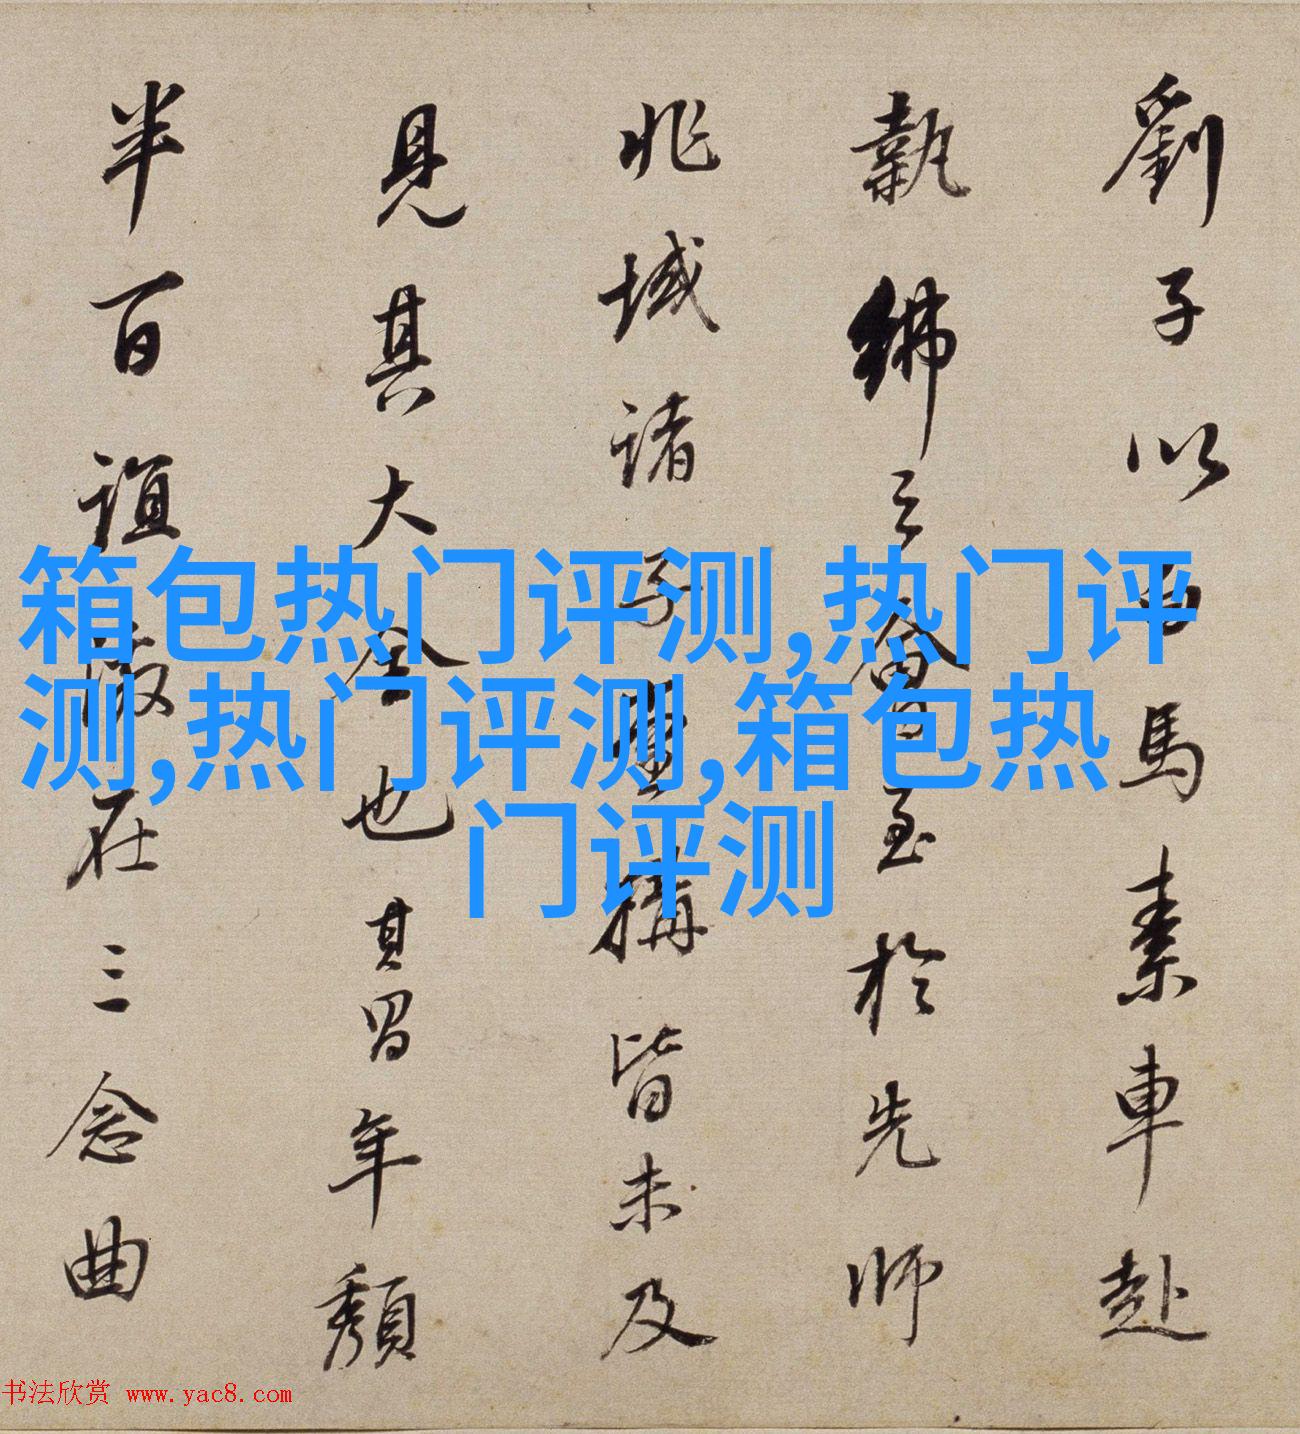 劉子以白馬素車赴
執紼之會至於先師
兆域諸子豐構皆未及
見其大全也其習年頽
半百誼激在三念曲
箱包热门评测,热门评
测,热门评测,箱包热
门评测
书法欣赏 www.yac8.com